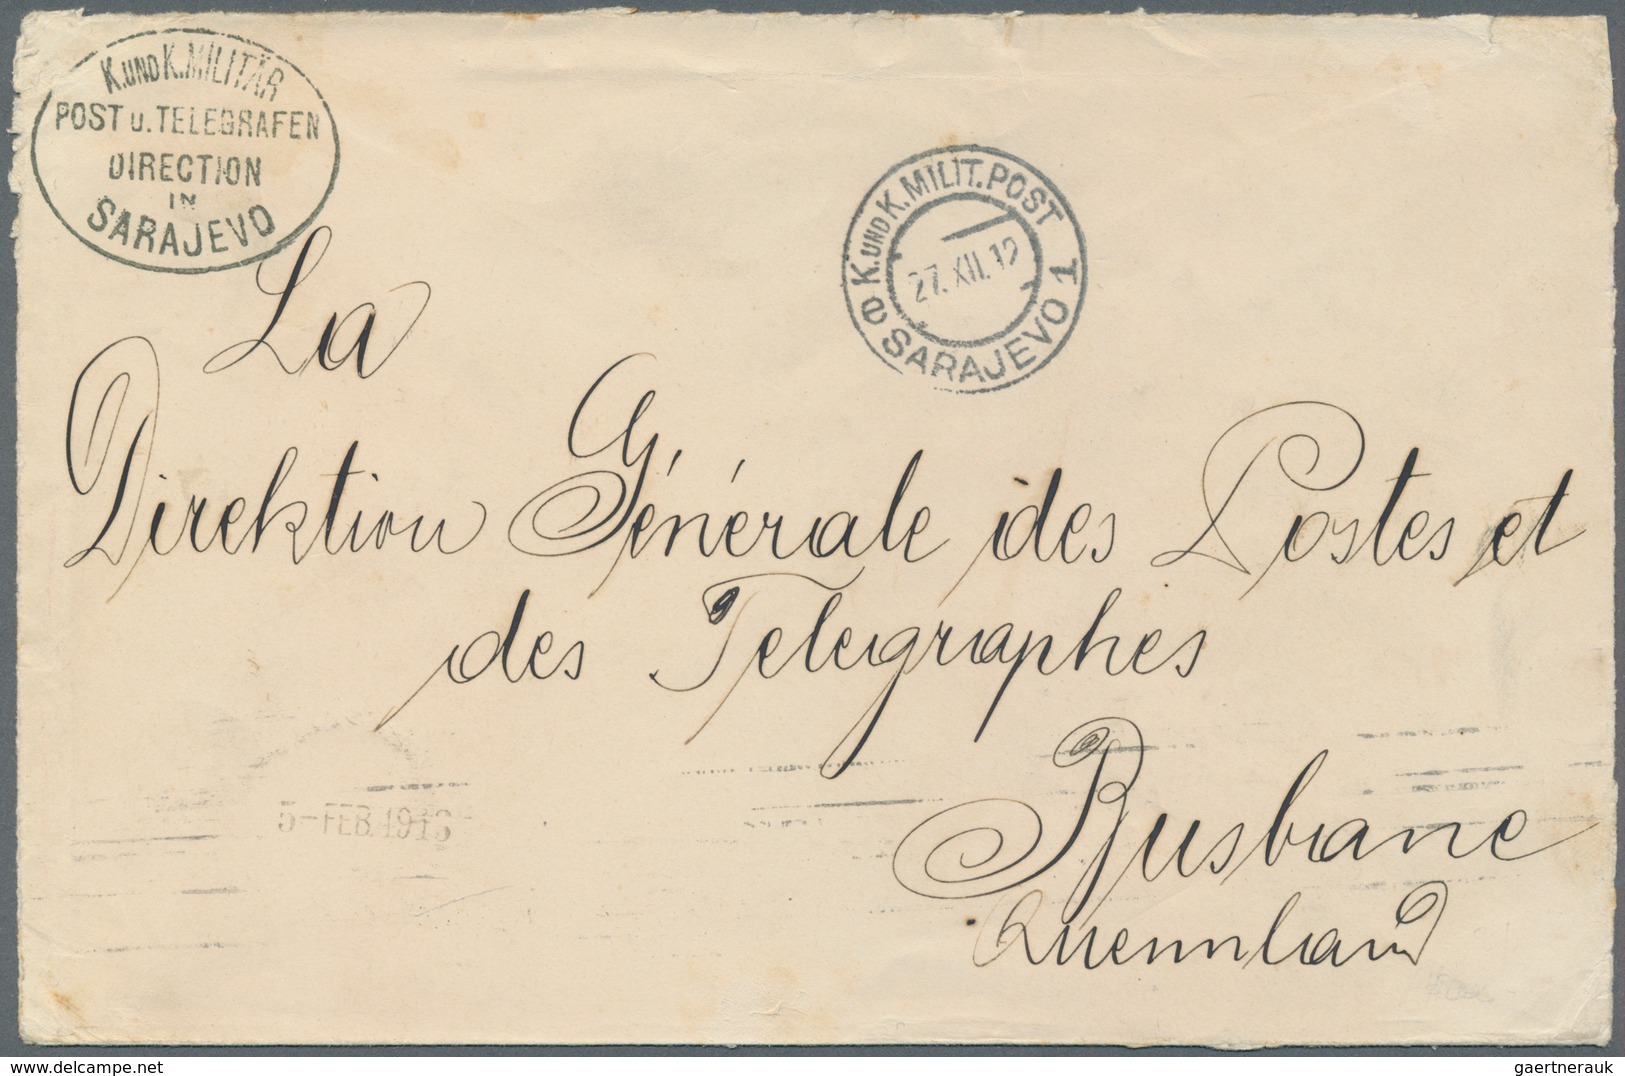 K. UND K. MILITÄR
POST U. TELEGRAFEN
DIRECTION
IN
SARAJEVO
K. UND K. MILIT. POST
27. XII. 12
SARAJEVO 1
La
Direktion Générale des Postes et
des Telegraphes
Brisbane
Queennland
5-FEB. 1913
gaertnerauk